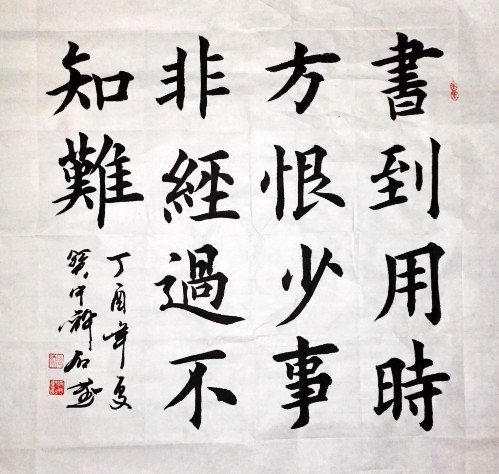 書到用時
方恨少事
非經過不
知難
丁酉年夏